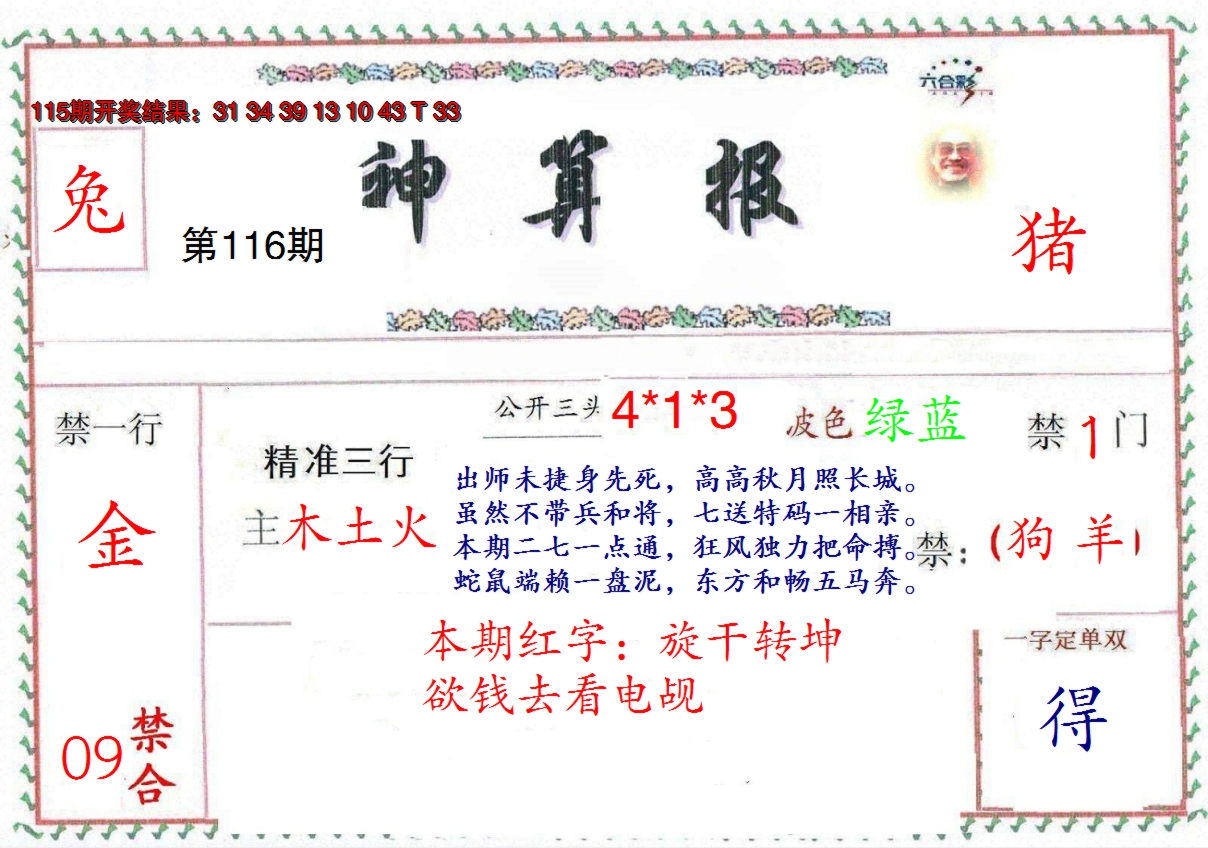 六合彩
115期开奖结果：31 34 39 13 10 43 T 33
神算报
兔
第116期
猪
禁一行
金
09
禁合
精准三行
主木土火
公开三头 4*1*3
波色 绿蓝
禁1门
出师未捷身先死，高高秋月照长城。
虽然不带兵和将，七送特码一相亲。
本期二七一点通，狂风独力把命搏。
蛇鼠端赖一盘泥，东方和畅五马奔。
禁：（狗 羊）
本期红字：旋干转坤
欲钱去看电觇
一字定单双
得